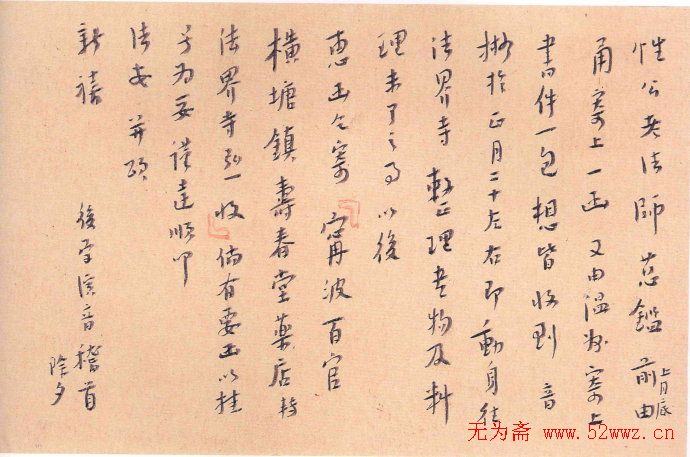 性公老法師 慈鑑 前由
上月底
甬寄上一函 又由溫州寄上
書件一包 想皆收到 音
擬於正月二十左右即動身往
法界寺 整理書物及料
理未了之事 以後
惠函乞寄『甯波百官
橫塘鎮壽春堂藥店轉
法界寺弘一收』倘有要函以挂
号为妥 謹達順叩
法安 并頌
新禧
後学演音稽首
除夕
无为斋 www.52wwz.cn